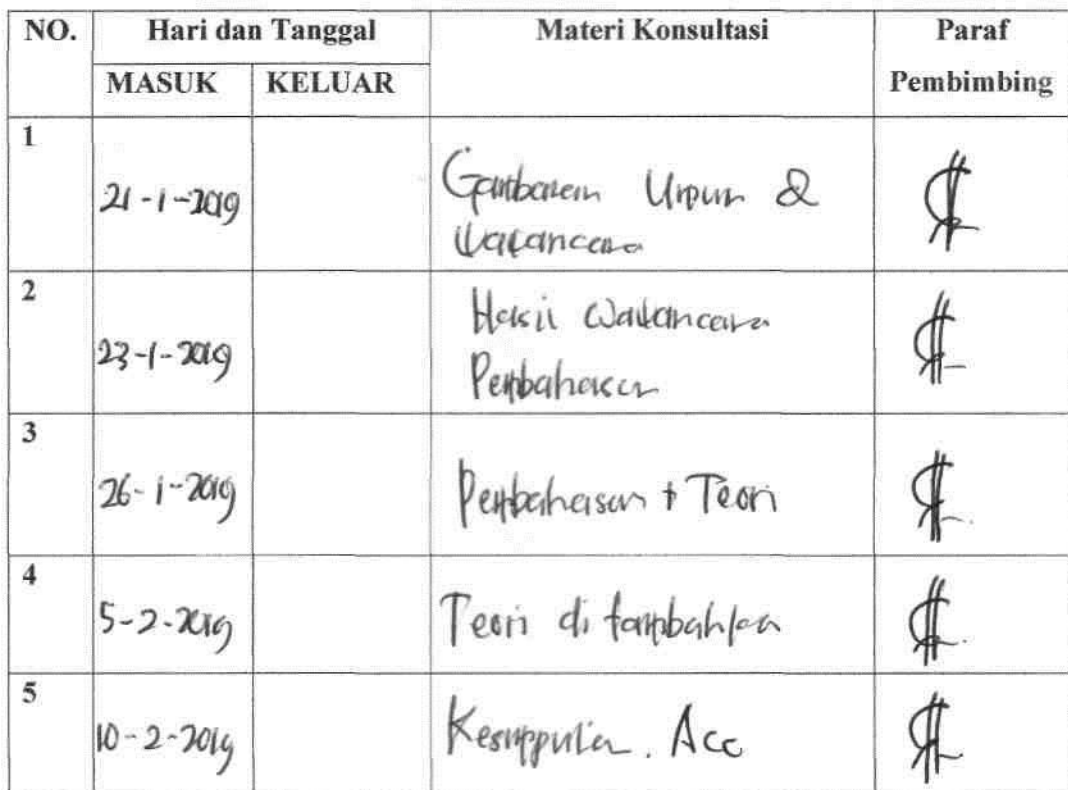 NO. Hari dan Tanggal Materi Konsultasi Paraf
MASUK KELUAR Pembimbing
1
21-1-2019 Gambaran Umum &
Wawancara
2
23-1-2019 Hasil Wawancara
Pembahasan
3
26-1-2019 Pembahasan + Teori
4
5-2-2019 Teori di tambahkan
5
10-2-2019 Kesimpulan. Acc